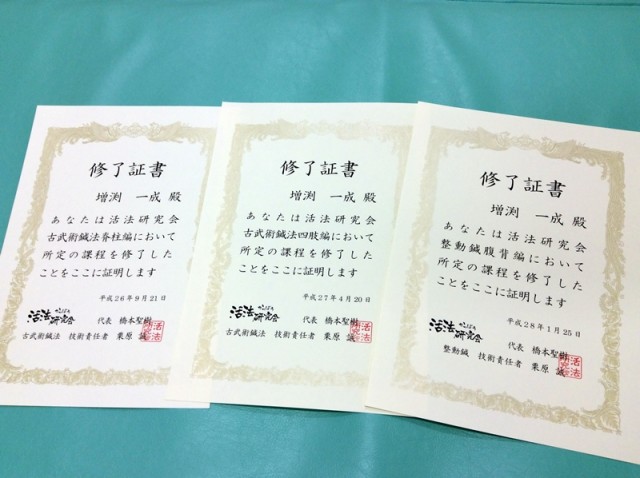 修了証書
増渕 一成 殿
あなたは活法研究会
古武術鍼法脊柱編において
所定の課程を修了した
ことをここに証明します
平成26年9月21日
活法研究会
代表 橋本聖樹
古武術鍼法 技術責任者 栗原 誠
修了証書
増渕 一成 殿
あなたは活法研究会
古武術鍼法四肢編において
所定の課程を修了した
ことをここに証明します
平成27年4月20日
活法研究会
代表 橋本聖樹
古武術鍼法 技術責任者 栗原 誠
修了証書
増渕 一成 殿
あなたは活法研究会
整動鍼腹背編において
所定の課程を修了した
ことをここに証明します
平成28年1月25日
活法研究会
代表 橋本聖樹
整動鍼 技術責任者 栗原 誠